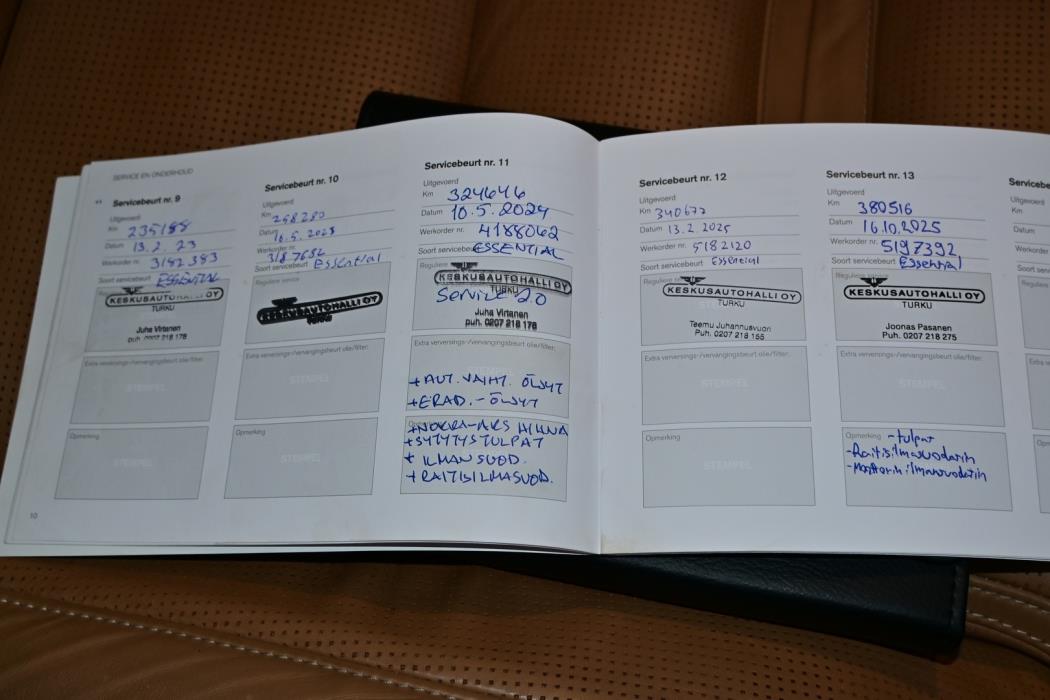 SERVICE EN ONDERHOUD
Servicebeurt nr. 9
Uitgevoerd
Km 235188
Datum 13.2.23
Werkorder nr. 3182383
Soort servicebeurt ESSENTIAL
KESKUSAUTOHALLI OY
TURKU
Juha Virtanen
puh. 0207 218 178
Extra verversings-/vervangingsbeurt olie/filter:
STEMPEL
Opmerking
STEMPEL
10
Servicebeurt nr. 10
Uitgevoerd
Km 258280
Datum 16.5.2023
Werkorder nr. 3187652
Soort servicebeurt Essential
Reguliere service
KESKUSAUTOHALLI OY
TURKU
Extra verversings-/vervangingsbeurt olie/filter:
STEMPEL
Opmerking
STEMPEL
Servicebeurt nr. 11
Uitgevoerd
Km 324646
Datum 10.5.2024
Werkorder nr. 4188062
Soort servicebeurt ESSENTIAL
Reguliere
KESKUSAUTOHALLI OY
TURKU
Service 2.0
Juha Virtanen
puh. 0207 218 178
Extra verversings-/vervangingsbeurt olie/filter:
+ AUT. VAIHT. ÖLJYT
+ ERAD. - ÖLJYT
+ NOKKA-AKS HIHNA
+ SYTYTYSTULPAT
+ ILMANSUOD.
+ RAITISILMASUOD.
Servicebeurt nr. 12
Uitgevoerd
Km 340677
Datum 13.2 2025
Werkorder nr. 5182120
Soort servicebeurt Essential
Reguliere
KESKUSAUTOHALLI OY
TURKU
Teemu Juhannusvuori
Puh. 0207 218 155
Extra verversings-/vervangingsbeurt olie/filter:
STEMPEL
Opmerking
STEMPEL
Servicebeurt nr. 13
Uitgevoerd
Km 380516
Datum 16.10.2025
Werkorder nr. 5197392
Soort servicebeurt Essential
Reguliere service
KESKUSAUTOHALLI OY
TURKU
Joonas Pasanen
Puh. 0207 218 275
Extra verversings-/vervangingsbeurt olie/filter:
STEMPEL
Opmerking
-tulpat
-Raitisilmasuodatin
-Moottorin ilmansuodatin
Km
Datum